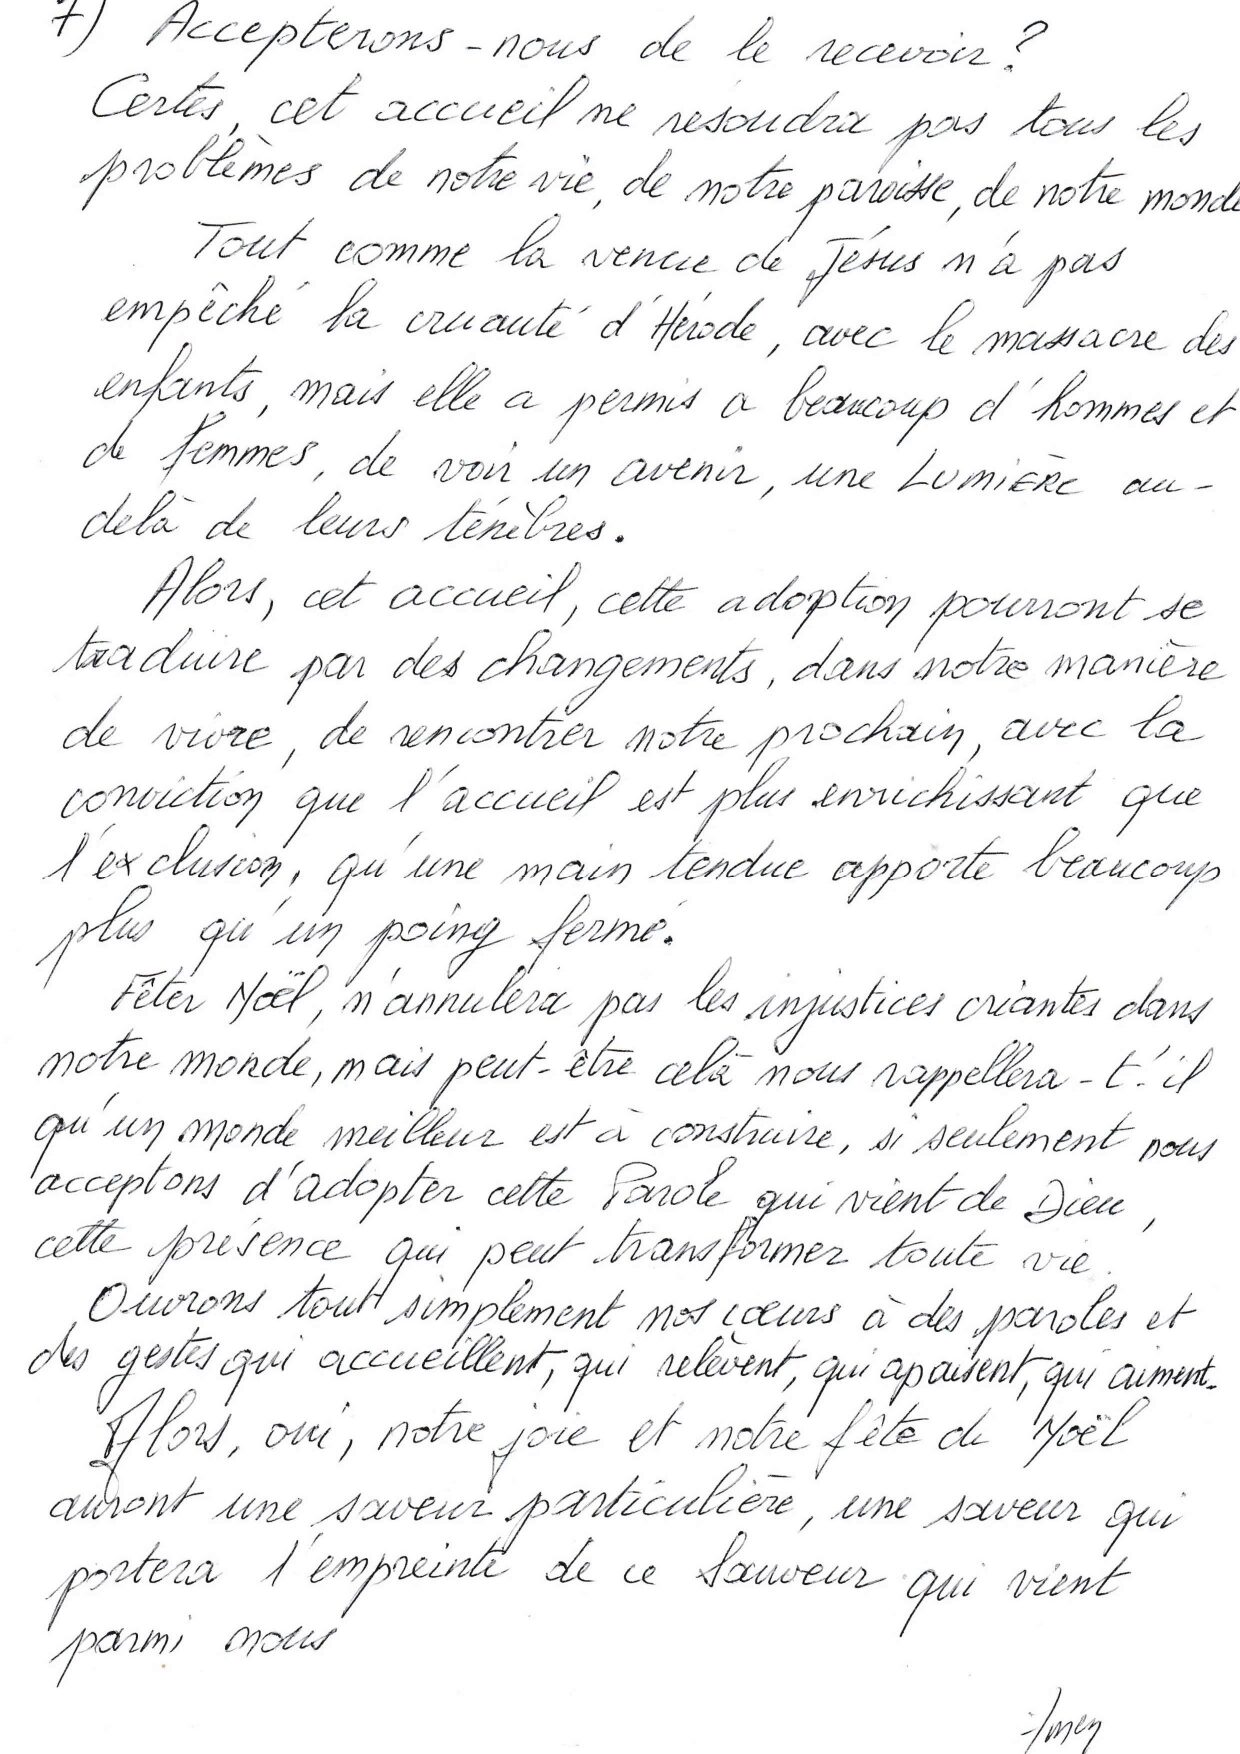 7) Accepterons-nous de le recevoir ?
Certes, cet accueil ne résoudra pas tous les
problèmes de notre vie, de notre paroisse, de notre monde
Tout comme la venue de Jésus n'a pas
empêché la cruauté d'Hérode, avec le massacre des
enfants, mais elle a permis a beaucoup d'hommes et
de femmes, de voir un avenir, une LUMIÈRE au-
delà de leurs ténèbres.
Alors, cet accueil, cette adoption pourront se
traduire par des changements, dans notre manière
de vivre, de rencontrer notre prochain, avec la
conviction que l'accueil est plus enrichissant que
l'exclusion, qu'une main tendue apporte beaucoup
plus qu'un poing fermé.
Fêter Noël, n'annulera pas les injustices criantes dans
notre monde, mais peut-être celà nous rappellera-t'-il
qu'un monde meilleur est à construire, si seulement nous
acceptons d'adopter cette Parole qui vient de Dieu,
cette présence qui peut transformer toute vie.
Ouvrons tout simplement nos cœurs à des paroles et
des gestes qui accueillent, qui relèvent, qui apaisent, qui aiment.
Alors, oui, notre joie et notre fête de Noël
auront une saveur particulière, une saveur qui
portera l'empreinte de ce Sauveur qui vient
parmi nous
Amen